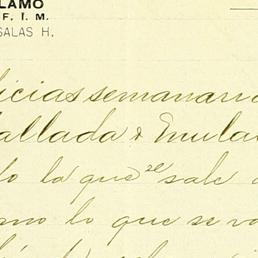 LAMO
F. Í. M.
SALAS H.
licias semanari
allada &
lo la que se sale
mo lo que se va